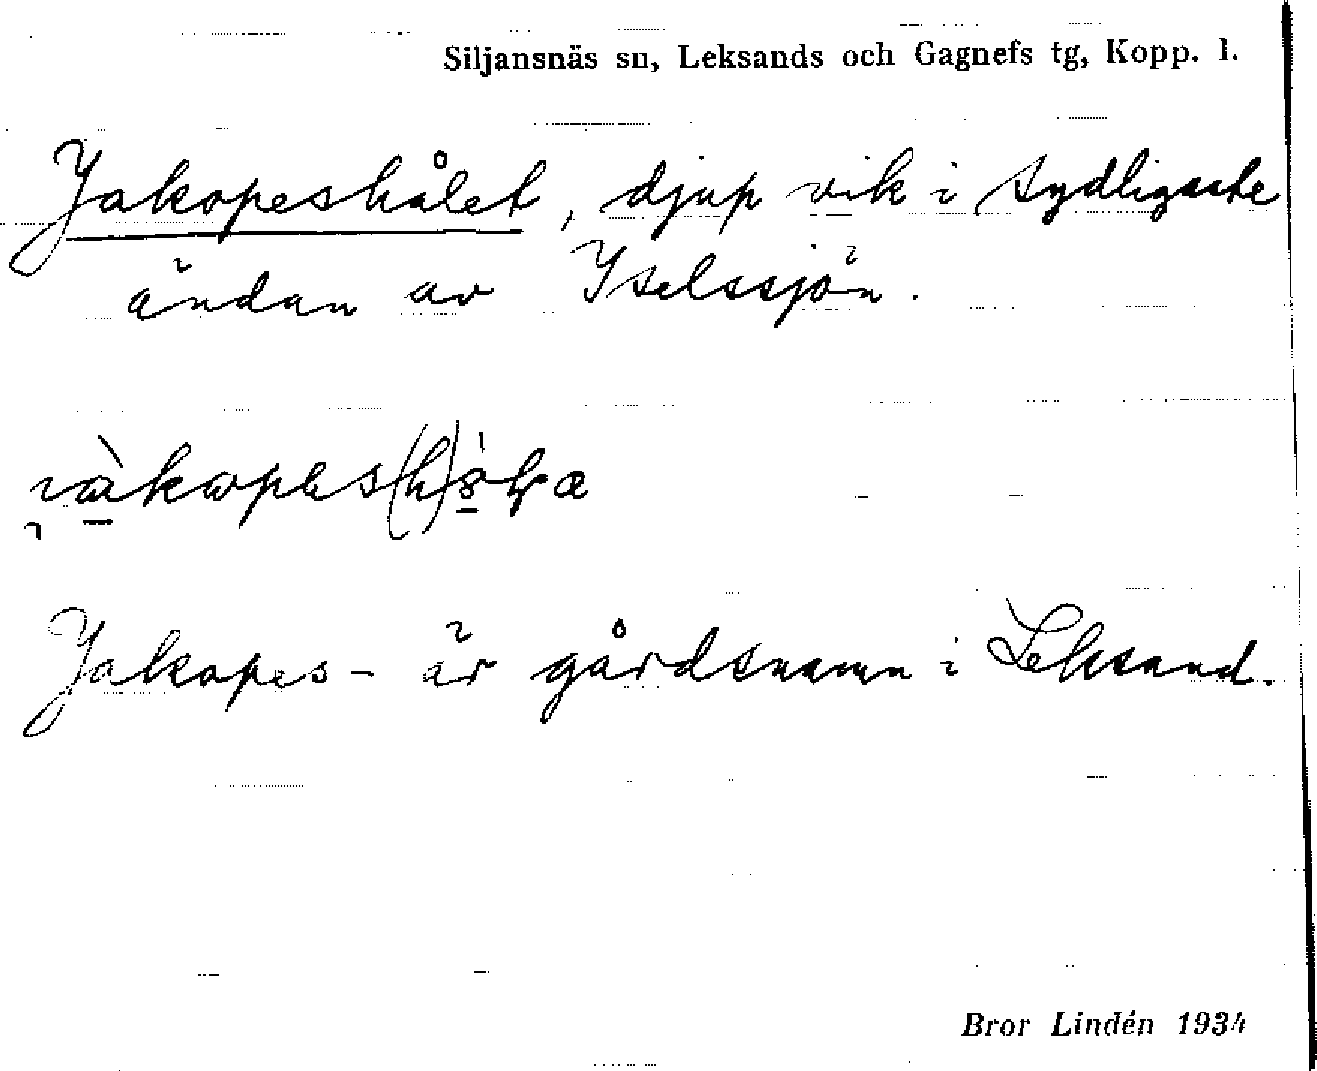 Siljansnäs sn, Leksands och Gagnefs tg, Kopp. l.
Jakopeshålet, djup vik i sydligaste
ändan av Yselssjön.
Jakopes- är gårdsnamn i Leksand.
Bror Lindén 1934